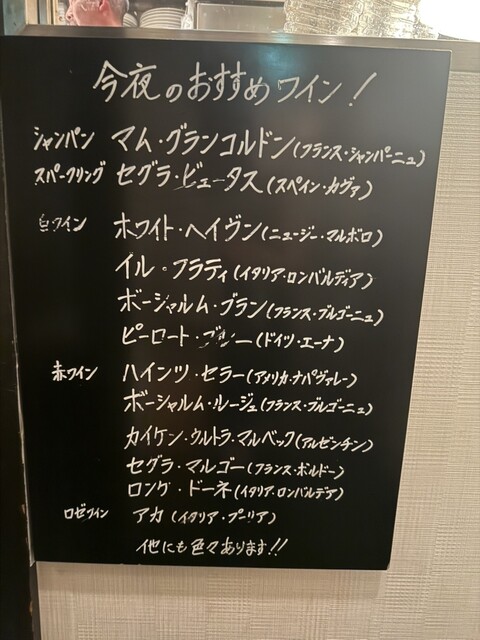 今夜のおすすめワイン!
シャンパン マム・グランコルドン(フランス・シャンパーニュ)
スパークリング セグラ・ビュータス(スペイン・カヴァ)
白ワイン ホワイト・ヘイヴン(ニュージー・マルボロ)
イル・フラティ(イタリア・ロンバルディア)
ボーシャルム・ブラン(フランス・ブルゴーニュ)
ピーロート・ブルー(ドイツ・ナーエ)
赤ワイン ハインツ・セラー(アメリカ・ナパヴァレー)
ボーシャルム・ルージュ(フランス・ブルゴーニュ)
カイケン・ウルトラ・マルベック(アルゼンチン)
セグラ・マルゴー(フランス・ボルドー)
ロンケ・ドーネ(イタリア・ロンバルデア)
ロゼワイン アカ(イタリア・プーリア)
他にも色々あります!!